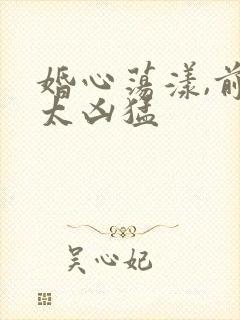 婚心荡漾,前
太凶猛
吴心妃